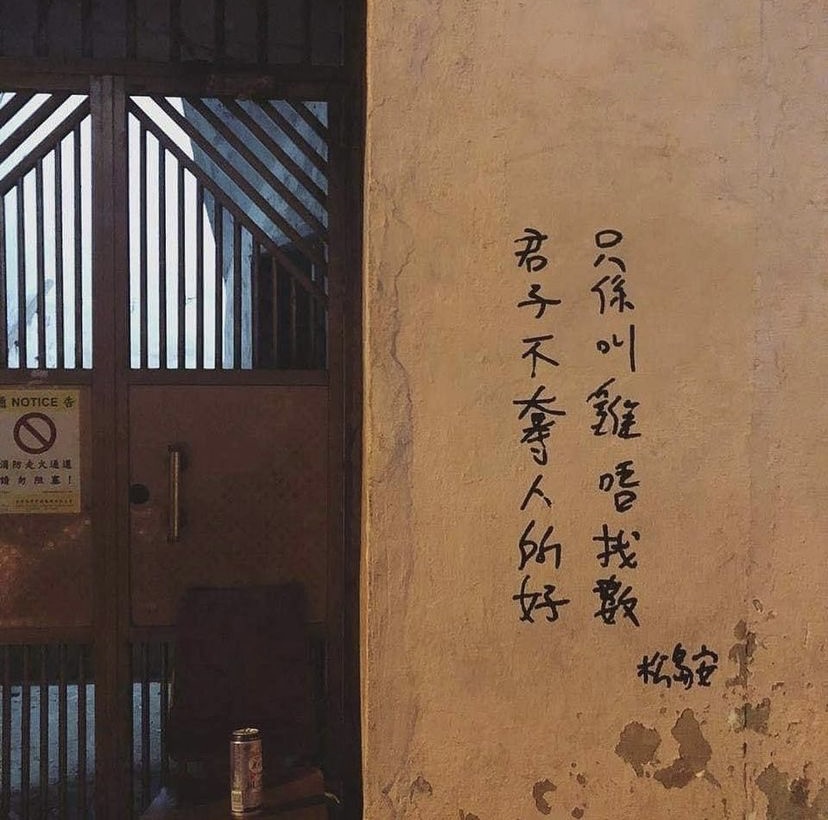 君子不奪人所好
只係叫雞唔找數
松島安
通 NOTICE 告
消防走火通道
請勿阻塞！